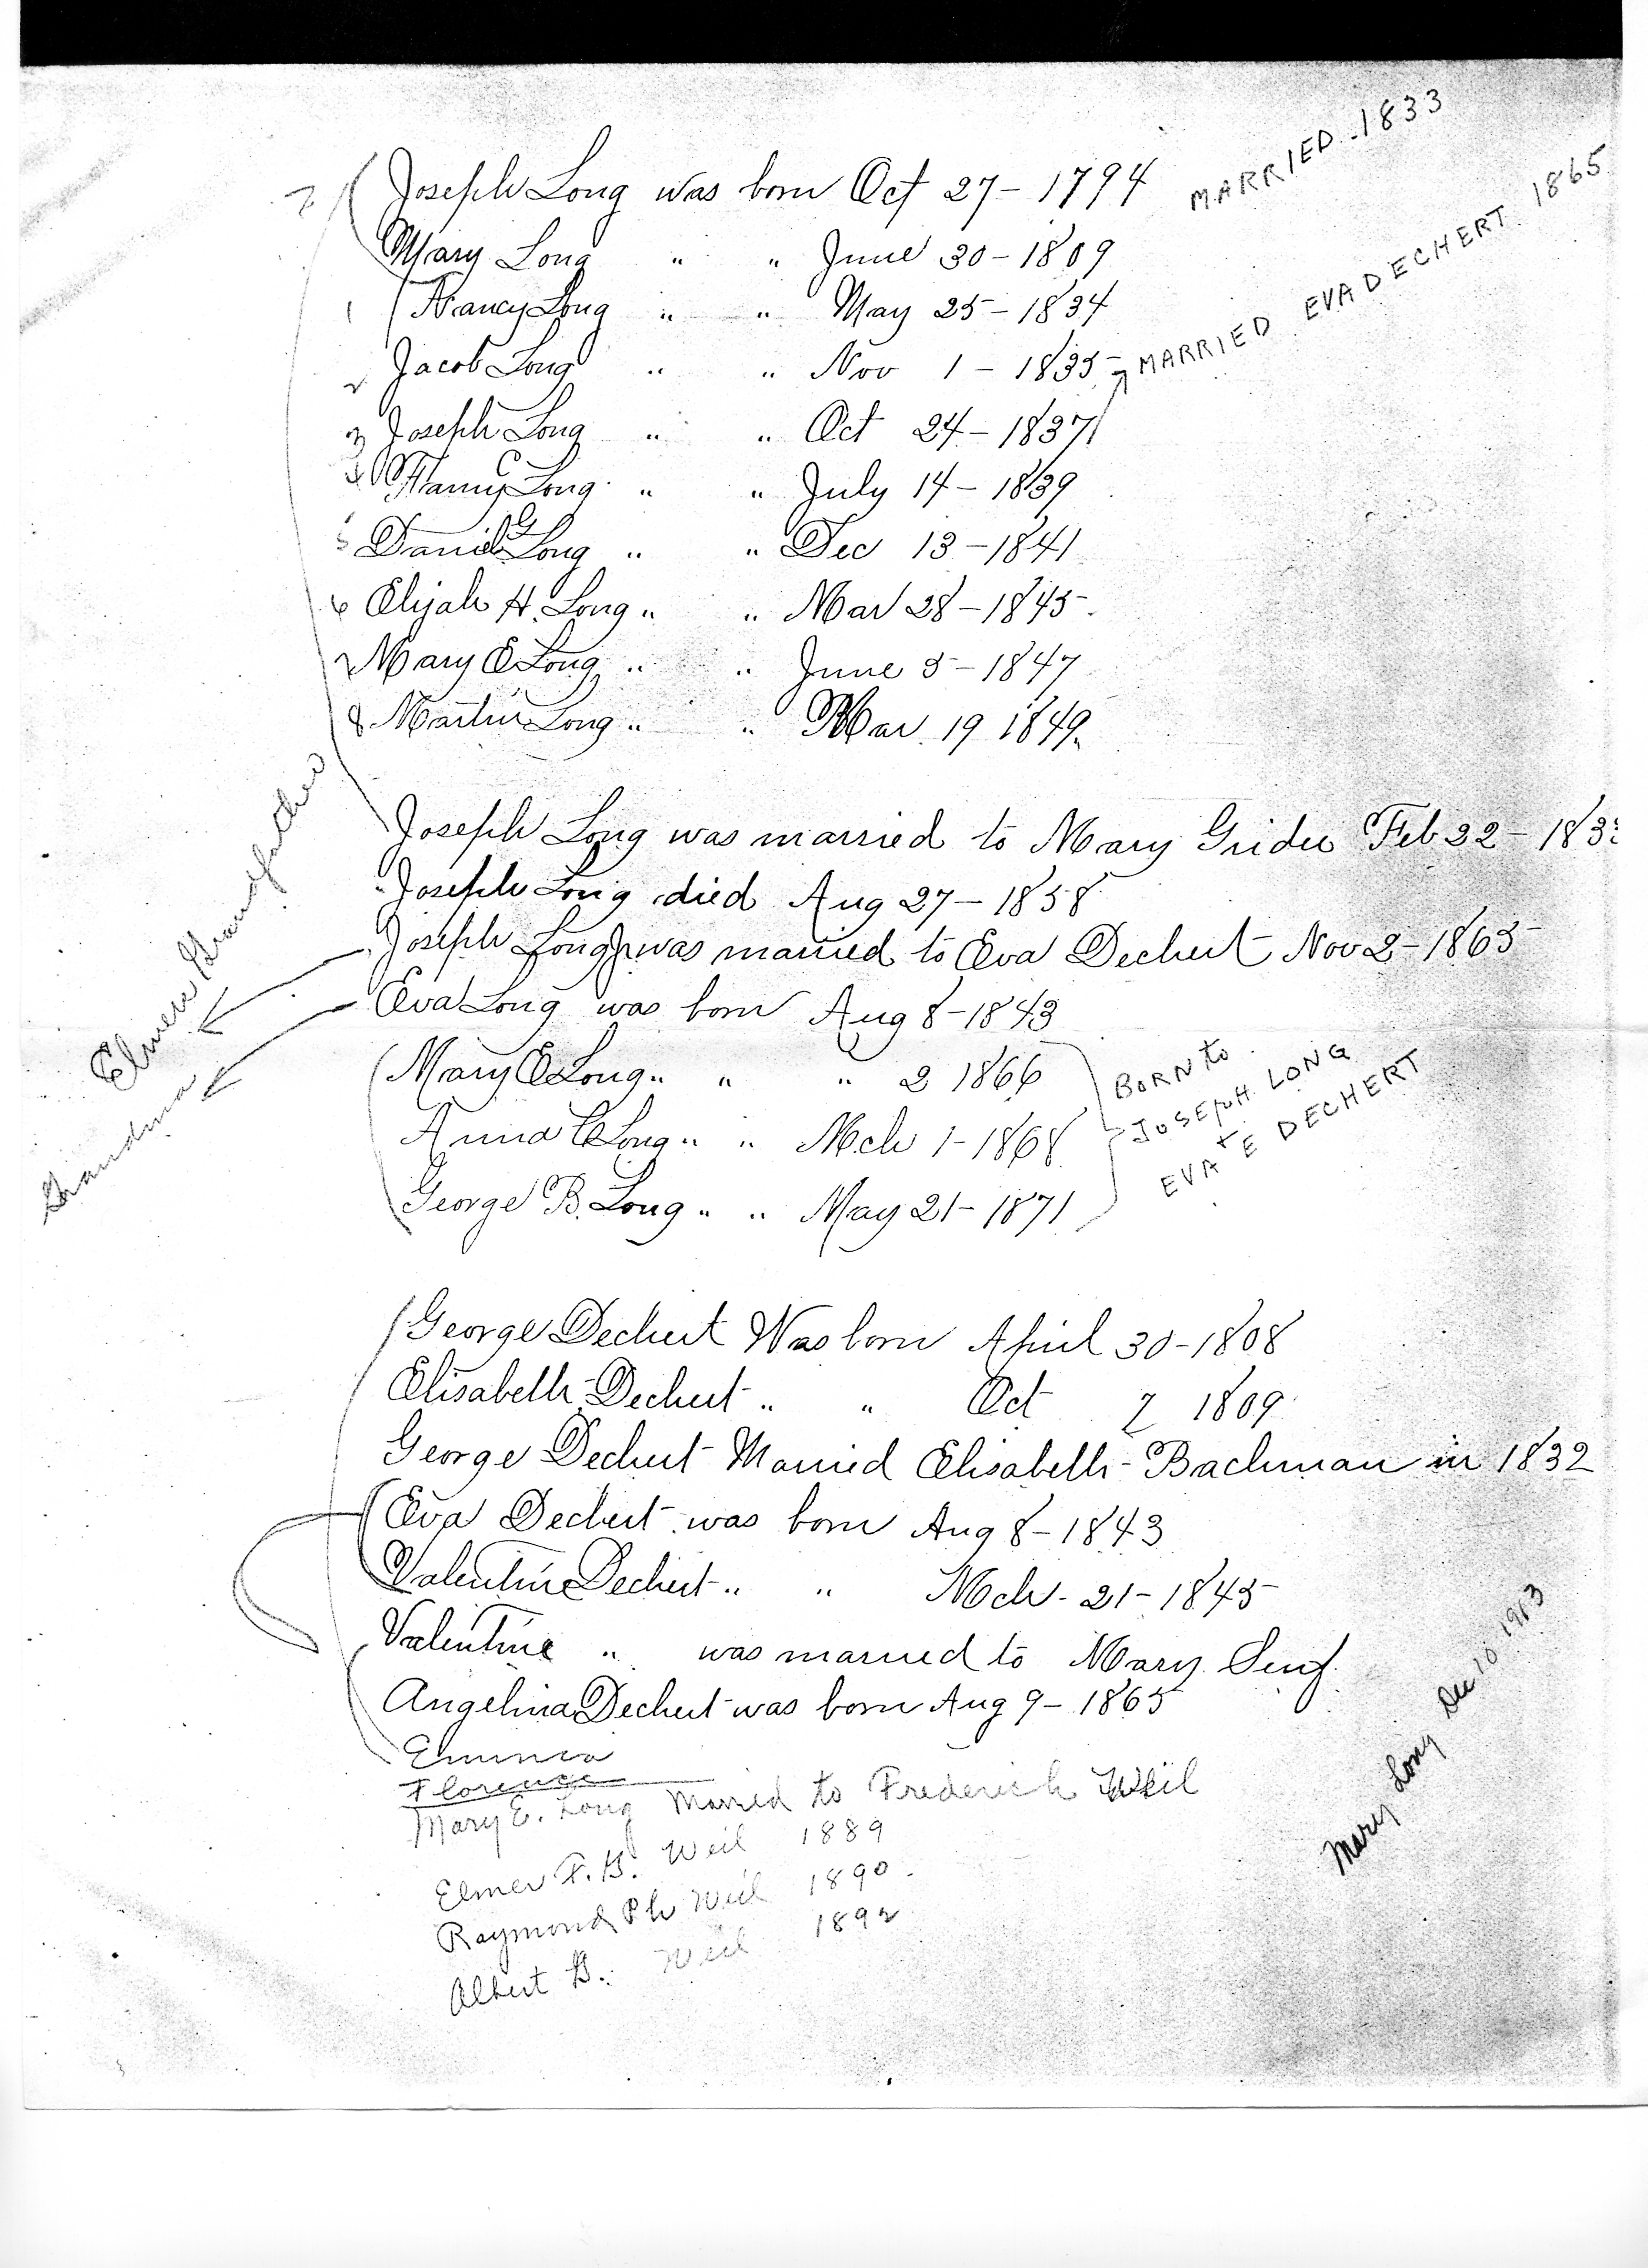 MARRIED - 1833
Joseph Long was born Oct 27 - 1794
Mary Long " " June 30 - 1809
1 Nancy Long " " May 25 - 1834
2 Jacob Long " " Nov 1 - 1835
MARRIED EVA DECHERT 1865
3 Joseph Long " " Oct 24 - 1837
4 Fanny C Long " " July 14 - 1839
5 Daniel G Long " " Dec 13 - 1841
6 Elijah H. Long " " Mar 28 - 1845
7 Mary E Long " " June 5 - 1847
8 Martin Long " " Mar 19 1849
Joseph Long was married to Mary Grider Feb 22 - 183
Joseph Long died Aug 27 - 1858
Joseph Long Jr was married to Eva Dechert Nov 2 - 1865
Elmers Grandfather
Eva Long was born Aug 8 - 1843
Grandma
Mary E Long " " " 2 1866
Anna C Long " " Mch 1 - 1868
George B. Long " " May 21 - 1871
BORN to
JOSEPH LONG
+
EVA E DECHERT
George Dechert Was born April 30 - 1808
Elisabeth Dechert " " Oct 7 1809
George Dechert Married Elisabeth Bachman in 1832
Eva Dechert was born Aug 8 - 1843
Valentine Dechert " " Mch - 21 - 1845
Valentine " was married to Mary Senf
Angelina Dechert was born Aug 9 - 1865
Emma
Florence
Mary E. Long Married to Frederich Weil
Elmer F. G. Weil 1889
Raymond Ph Weil 1890
Albert G. Weil 1892
Mary Long Dec 10 1913